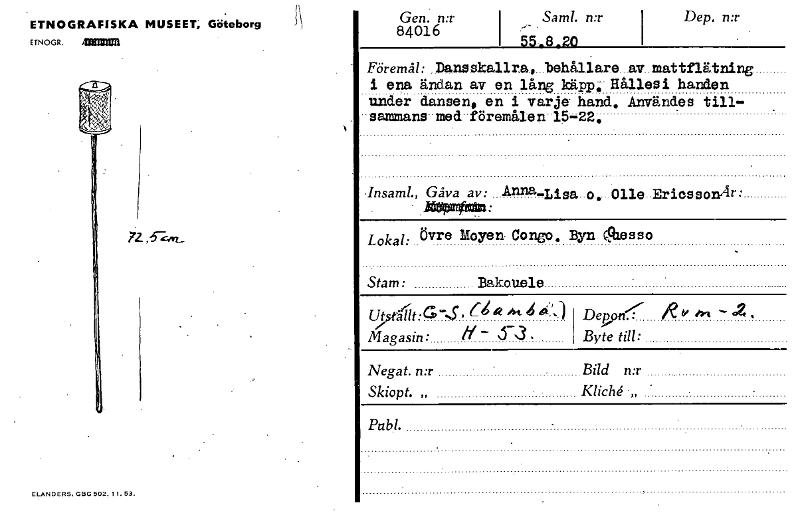 ETNOGRAFISKA MUSEET, Göteborg
ETNOGR.
72,5 cm
ELANDERS, GBG 502, 11. 53.
Gen. n:r
84016
Saml. n:r
55.8.20
Dep. n:r
Föremål: Dansskallra, behållare av mattflätning
i ena ändan av en lång käpp. Hålles i handen
under dansen, en i varje hand. Användes till-
sammans med föremålen 15-22.
Insaml., Gåva av: Anna-Lisa o. Olle Ericsson År:
Lokal: Övre Moyen Congo. Byn Quesso
Stam: Bakouele
Utställt: G-S. (bamba.) Depon.: Rum-2.
Magasin: H-53. Byte till:
Negat. n:r Bild n:r
Skiopt. „ Kliché „
Publ.